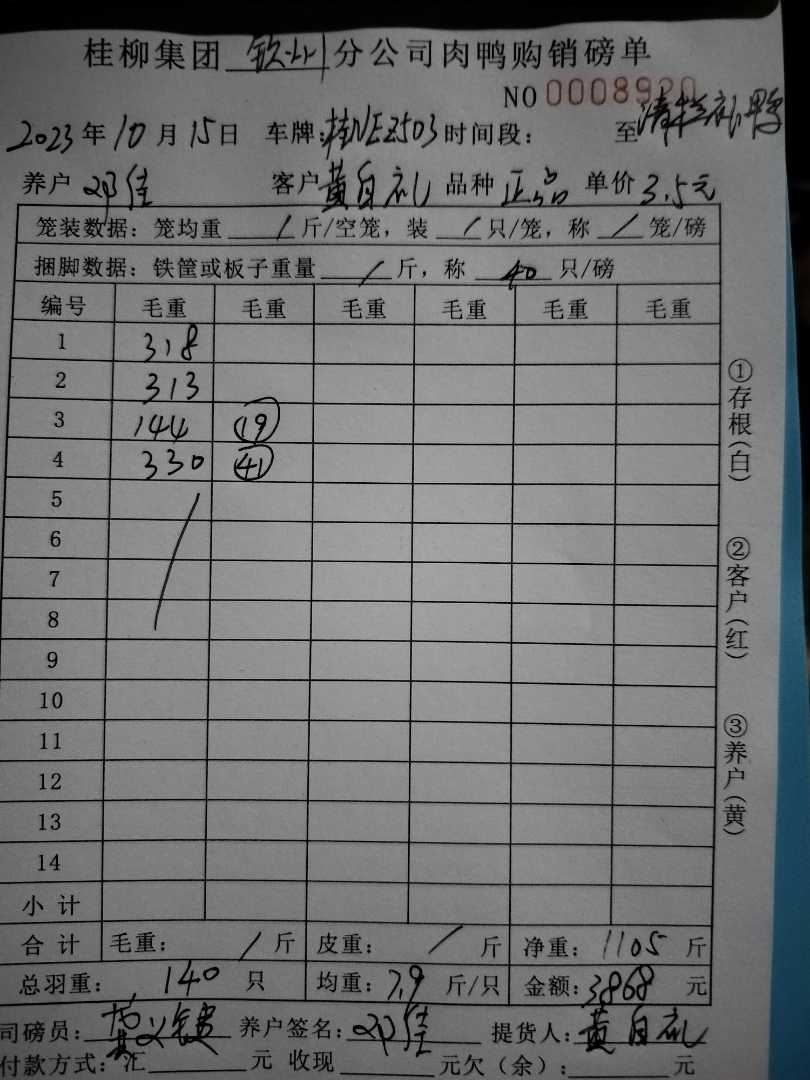 桂柳集团 钦州 分公司肉鸭购销磅单
NO 0008920
2023年10月15日 车牌:桂NEZ503 时间段: 至 清栏 鸭
养户 邓佳 客户 黄自礼 品种 正品 单价 3.5元
笼装数据: 笼均重 / 斤/空笼, 装 / 只/笼, 称 / 笼/磅
捆脚数据: 铁筐或板子重量 / 斤, 称 40 只/磅
编号 毛重 毛重 毛重 毛重 毛重 毛重
1 318
2 313
3 144 ⑲
4 330 ㊶
5
6
7
8
9
10
11
12
13
14
小计
合计 毛重: / 斤 皮重: / 斤 净重: 1105 斤
总羽重: 140 只 均重: 7.9 斤/只 金额: 3868 元
司磅员: 养户签名: 邓佳 提货人: 黄自礼
付款方式: 汇 元 收现 元欠(余): 元
①存根(白)
②客户(红)
③养户(黄)